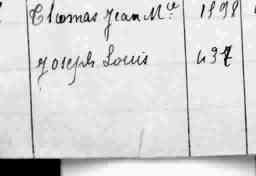 Thomas Jean M.ie 1898
Joseph Louis 437